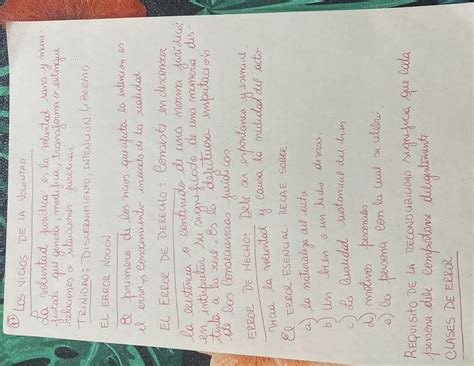 ① LOS VICIOS DE LA VOLUNTAD
La voluntad jurídica es la voluntad sana y mani
festada que genera, modifica, transforma o extingue
relaciones o situaciones jurídicas.
TRINIDAD: DISCERNIMIENTO, INTENCIÓN, LIBERTAD
EL ERROR NOCIÓN
El primero de los vicios que afecta la intención es
el error, conocimiento inexacto de la realidad
EL ERROR DE DERECHO: Consiste en desconocer
la existencia o contenido de una norma jurídica;
en interpretar su significado de una manera dis-
tinta a la real. Es la defectuosa imputación
de las consecuencias jurídicas.
ERROR DE HECHO: Debe ser espontáneo y esencial
vicia la voluntad y causa la nulidad del acto
EL ERROR ESENCIAL RECAE SOBRE
a) la naturaleza del acto
b) Un bien o un hecho diverso.
c) La cualidad sustancial del bien
d) motivos personales
e) la persona con la cual se celebró.
REQUISITO DE LA RECONOCIBILIDAD significa que cada
persona debe comportarse diligentemente
CLASES DE ERROR